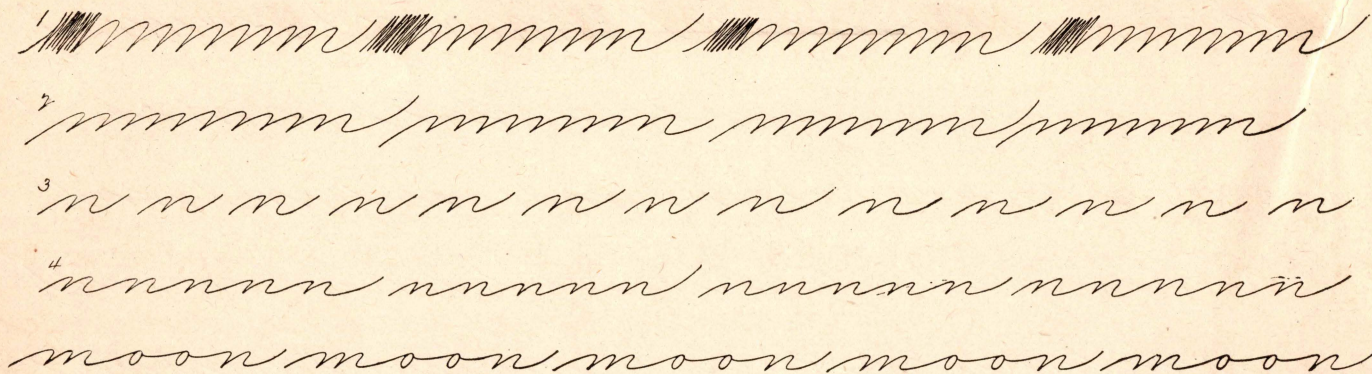 1
2
3 n n n n n n n n n n n n n
4 nnnnn nnnnn nnnnn nnnnn
moon moon moon moon moon